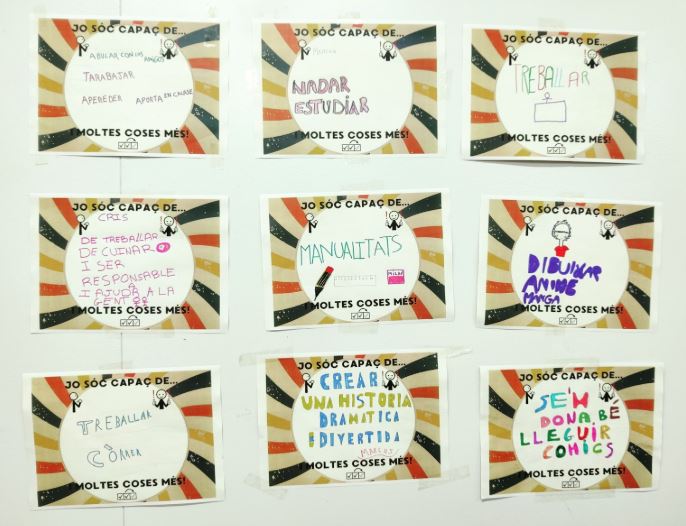 JO SÓC CAPAÇ DE...
TARABAJAR
APEREDER APORTA EN CALASE
I MOLTES COSES MÉS!
JO SÓC CAPAÇ DE...
NADAR
ESTUDIAR
I MOLTES COSES MÉS!
JO SÓC CAPAÇ DE...
TREBALLAR
I MOLTES COSES MÉS!
JO SÓC CAPAÇ DE...
CRIS
DE TREBALLAR
DE CUINAR
I SER
RESPONSABLE
I AJUDA A LA
GENT
I MOLTES COSES MÉS!
JO SÓC CAPAÇ DE...
MANUALITATS
MILAN
I MOLTES COSES MÉS!
JO SÓC CAPAÇ DE...
DIBUIXAR
ANIME
MANGA
I MOLTES COSES MÉS!
JO SÓC CAPAÇ DE...
TREBALLAR
CÒRRER
I MOLTES COSES MÉS!
JO SÓC CAPAÇ DE...
CREAR
UNA HISTORIA
DRAMATICA
I DIVERTIDA
MARCUS
I MOLTES COSES MÉS!
JO SÓC CAPAÇ DE...
SE'M
DONA BÉ
LLEGUIR
COMICS
I MOLTES COSES MÉS!